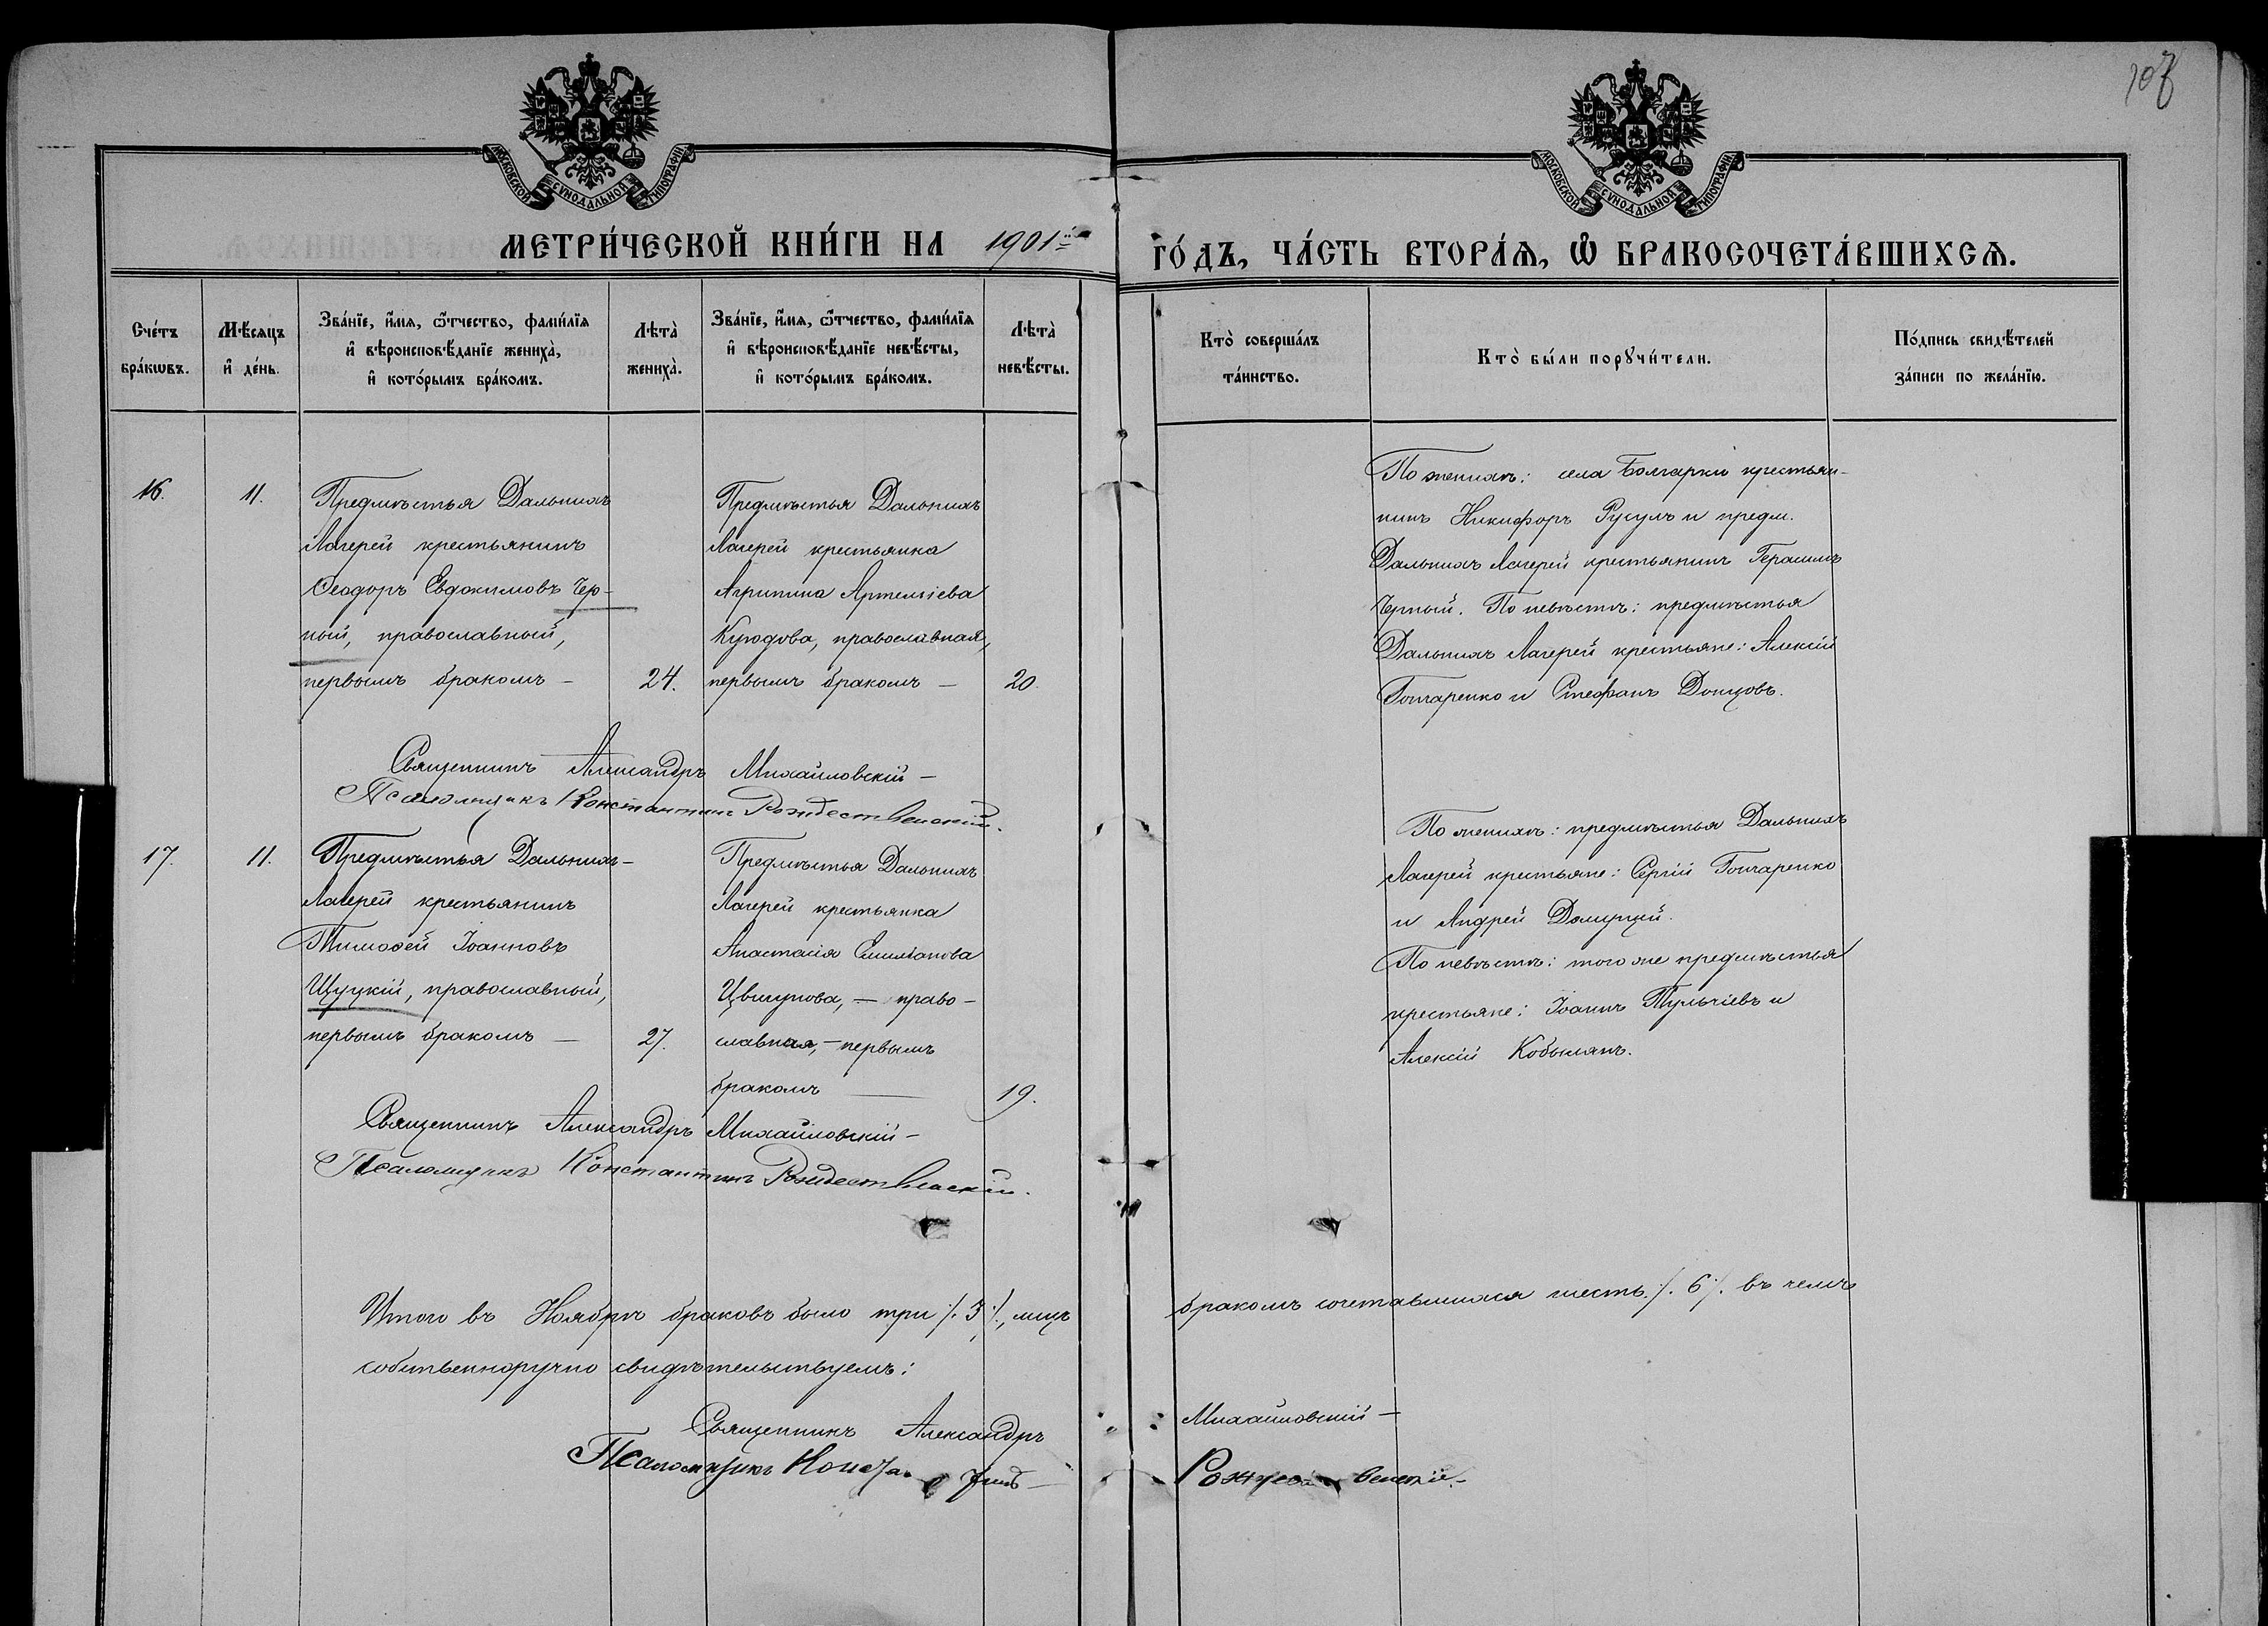 107
МОСКОВСКОЙ СѴНОДАЛЬНОЙ ТИПОГРАФІИ
МОСКОВСКОЙ СѴНОДАЛЬНОЙ ТИПОГРАФІИ
МЕТРИ́ЧЕСКОЙ КНИ́ГИ НА 1901й ГО́ДЪ, ЧА́СТЬ ВТОРА́Ѧ, Ѡ҆ БРАКОСОЧЕТА́ВШИХСѦ.
Сче́тъ
бра́кѡвъ.
Мѣ́сяцъ
и҆ де́нь.
Зва́нїе, и҆́мѧ, ѻ҆́тчество, фами́лїѧ
и҆ вѣроисповѣ́данїе жениха̀,
и҆ кото́рымъ бра́комъ.
Лѣта̀
жениха̀.
Зва́нїе, и҆́мѧ, ѻ҆́тчество, фами́лїѧ
и҆ вѣроисповѣ́данїе невѣ́сты,
и҆ кото́рымъ бра́комъ.
Лѣта̀
невѣ́сты.
Кто̀ соверша́лъ
та́инство.
Кто̀ бы́ли порꙋчи́тели.
По́дпись свидѣ́телей
за́писи по жела́нїю.
16.
11.
Предмѣстья Дальнихъ
Лагерей крестьянинъ
Ѳеодоръ Евдокимовъ Чер-
ный, православный,
первымъ бракомъ –
24.
Предмѣстья Дальнихъ
Лагерей крестьянка
Агрипина Артеміева
Курдова, православная,
первымъ бракомъ –
20.
По женихѣ: села Болгарки крестьян-
нинъ Никифоръ Русулъ и предм.
Дальнихъ Лагерей крестьянинъ Герасимъ
Черный. По невѣстѣ: предмѣстья
Дальнихъ Лагерей крестьяне: Алексій
Гончаренко и Стефанъ Донцовъ.
Священникъ Александръ Михайловскій –
Псаломщикъ Константинъ Рождественскій.
17.
11.
Предмѣстья Дальнихъ –
Лагерей крестьянинъ
Тимоѳей Іоанновъ
Щуцкій, православный,
первымъ бракомъ –
27.
Предмѣстья Дальнихъ
Лагерей крестьянка
Анастасія Емиліанова
Цвигунова, – право-
славная, – первымъ
бракомъ –
19.
По женихѣ: предмѣстья Дальнихъ
Лагерей крестьяне: Сергій Гончаренко
и Андрей
По невѣстѣ: того же предмѣстья
крестьяне: Іоаннъ Тульчіевъ и
Алексій Кобылянъ.
Священникъ Александръ Михайловскій –
Псаломщикъ Константинъ Рождественскій.
Итого въ Ноябрѣ браковъ было три /. 3 /., лицъ бракомъ сочетавшихся шесть ./. 6 /. въ чемъ
собственноручно свидѣтельствуемъ:
Священникъ Александръ Михайловскій –
Псаломщикъ